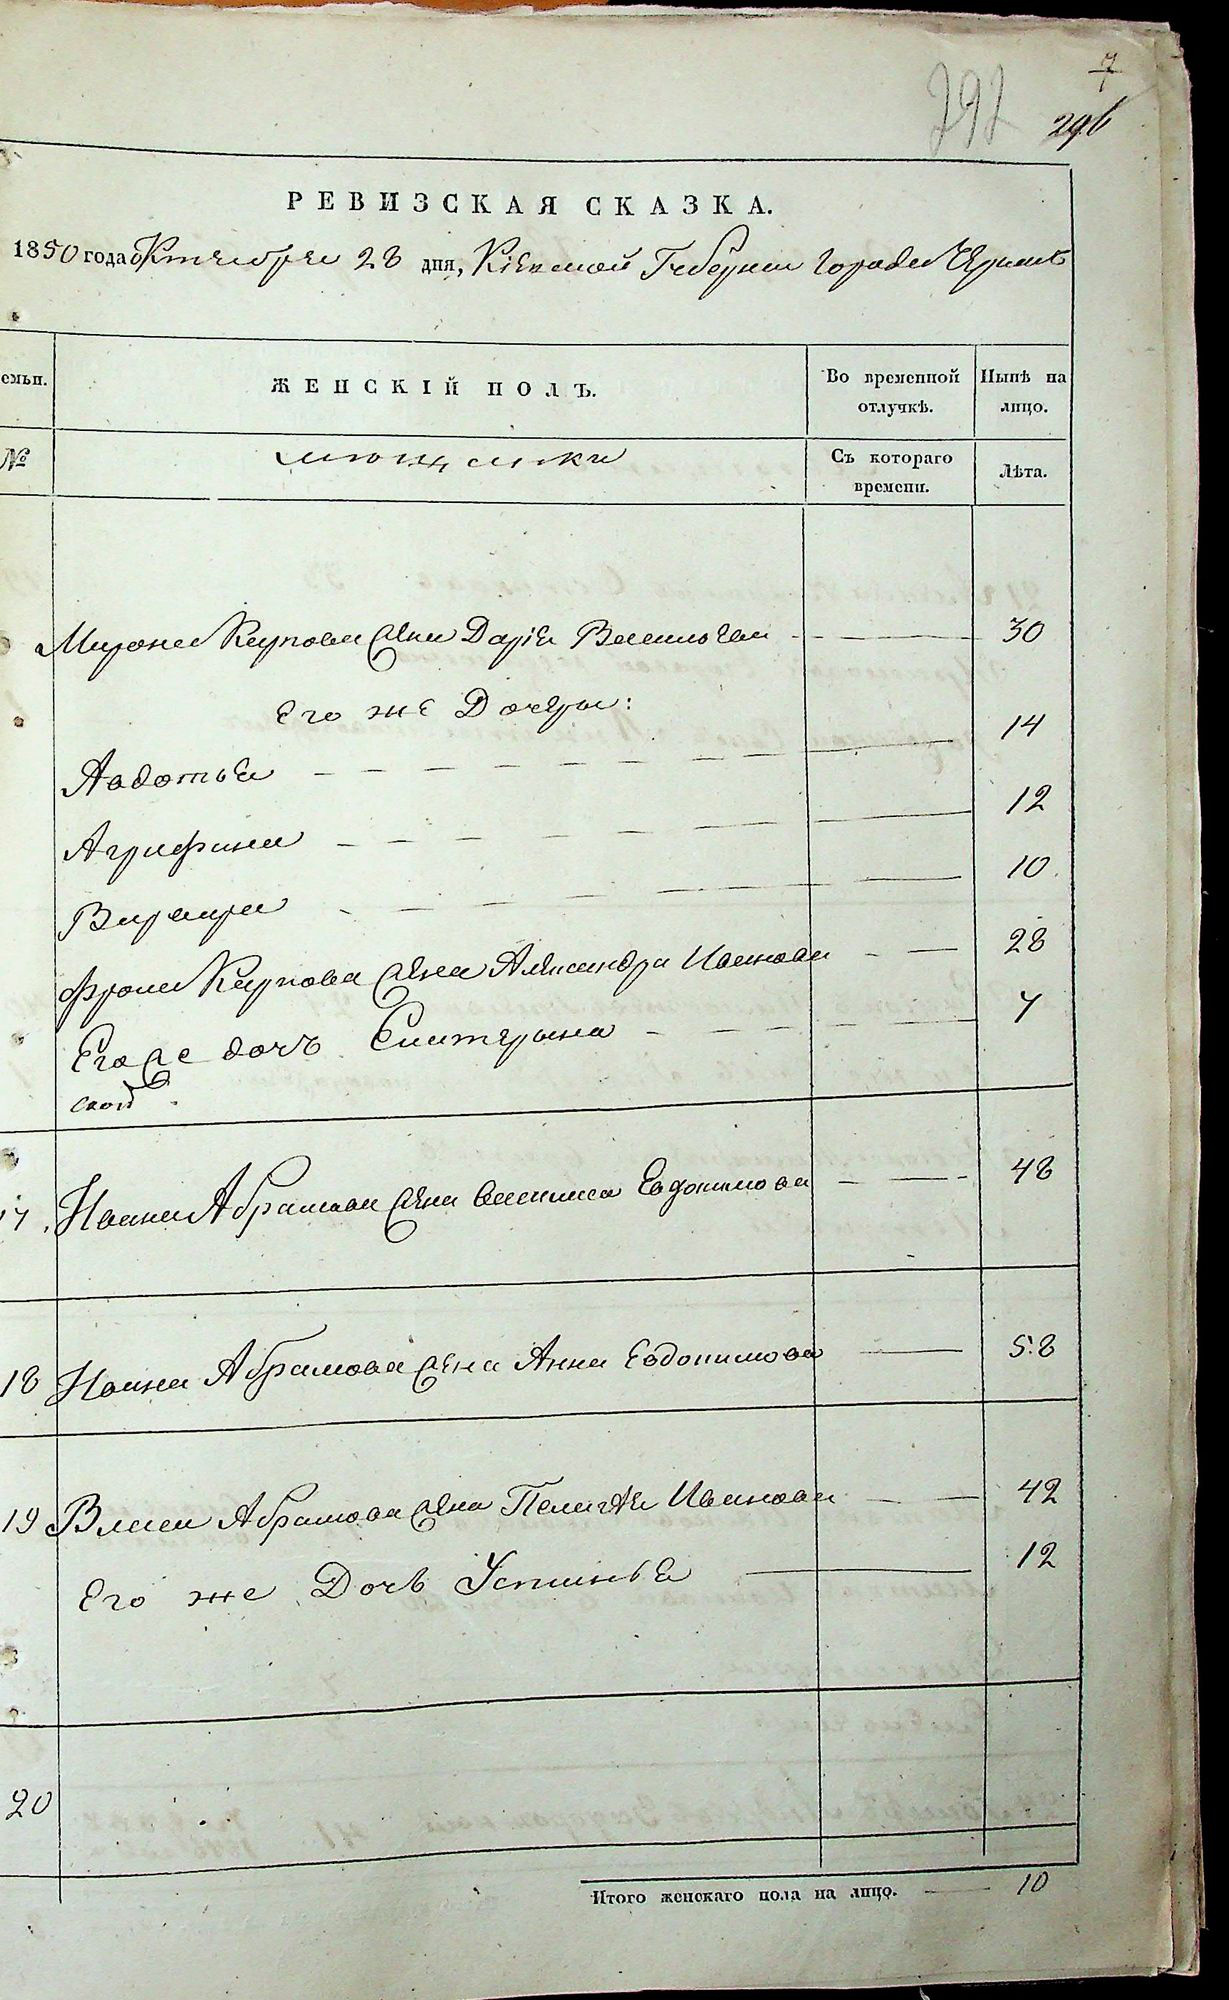 7
292 296
РЕВИЗСКАЯ СКАЗКА.
1850 года Октября 28 дня, Кіевской Губернии города Чернаб
емьи. ЖЕНСКІЙ ПОЛЪ. Во временной отлучкѣ. Нынѣ на лицо.
№ мющанки Съ котораго времени. Лѣта.
Мирона Карпова Жена Дарiя Васильева 30
Его же Дочери:
Авдотья 14
Агрифина 12
Варвара 10
Фрола Карпова Жена Александра Иванова 28
Его же дочь Екатерина 7
17. Ивана Абрамова Жена Евдокимова 48
18 Ивана Абрамова Жена Анна Евдокимова 58
19 Власа Абрамова Жена Пелагея Иванова 42
Его же Дочь Устинья 12
20
Итого женскаго пола на лицо. 10